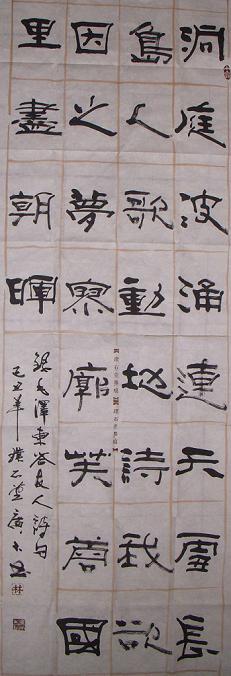 洞庭波涌連天雪長
島人歌動地詩我欲
因之夢寥廓芙蓉國
里盡朝暉
錄毛澤東答友人詩句
己丑年